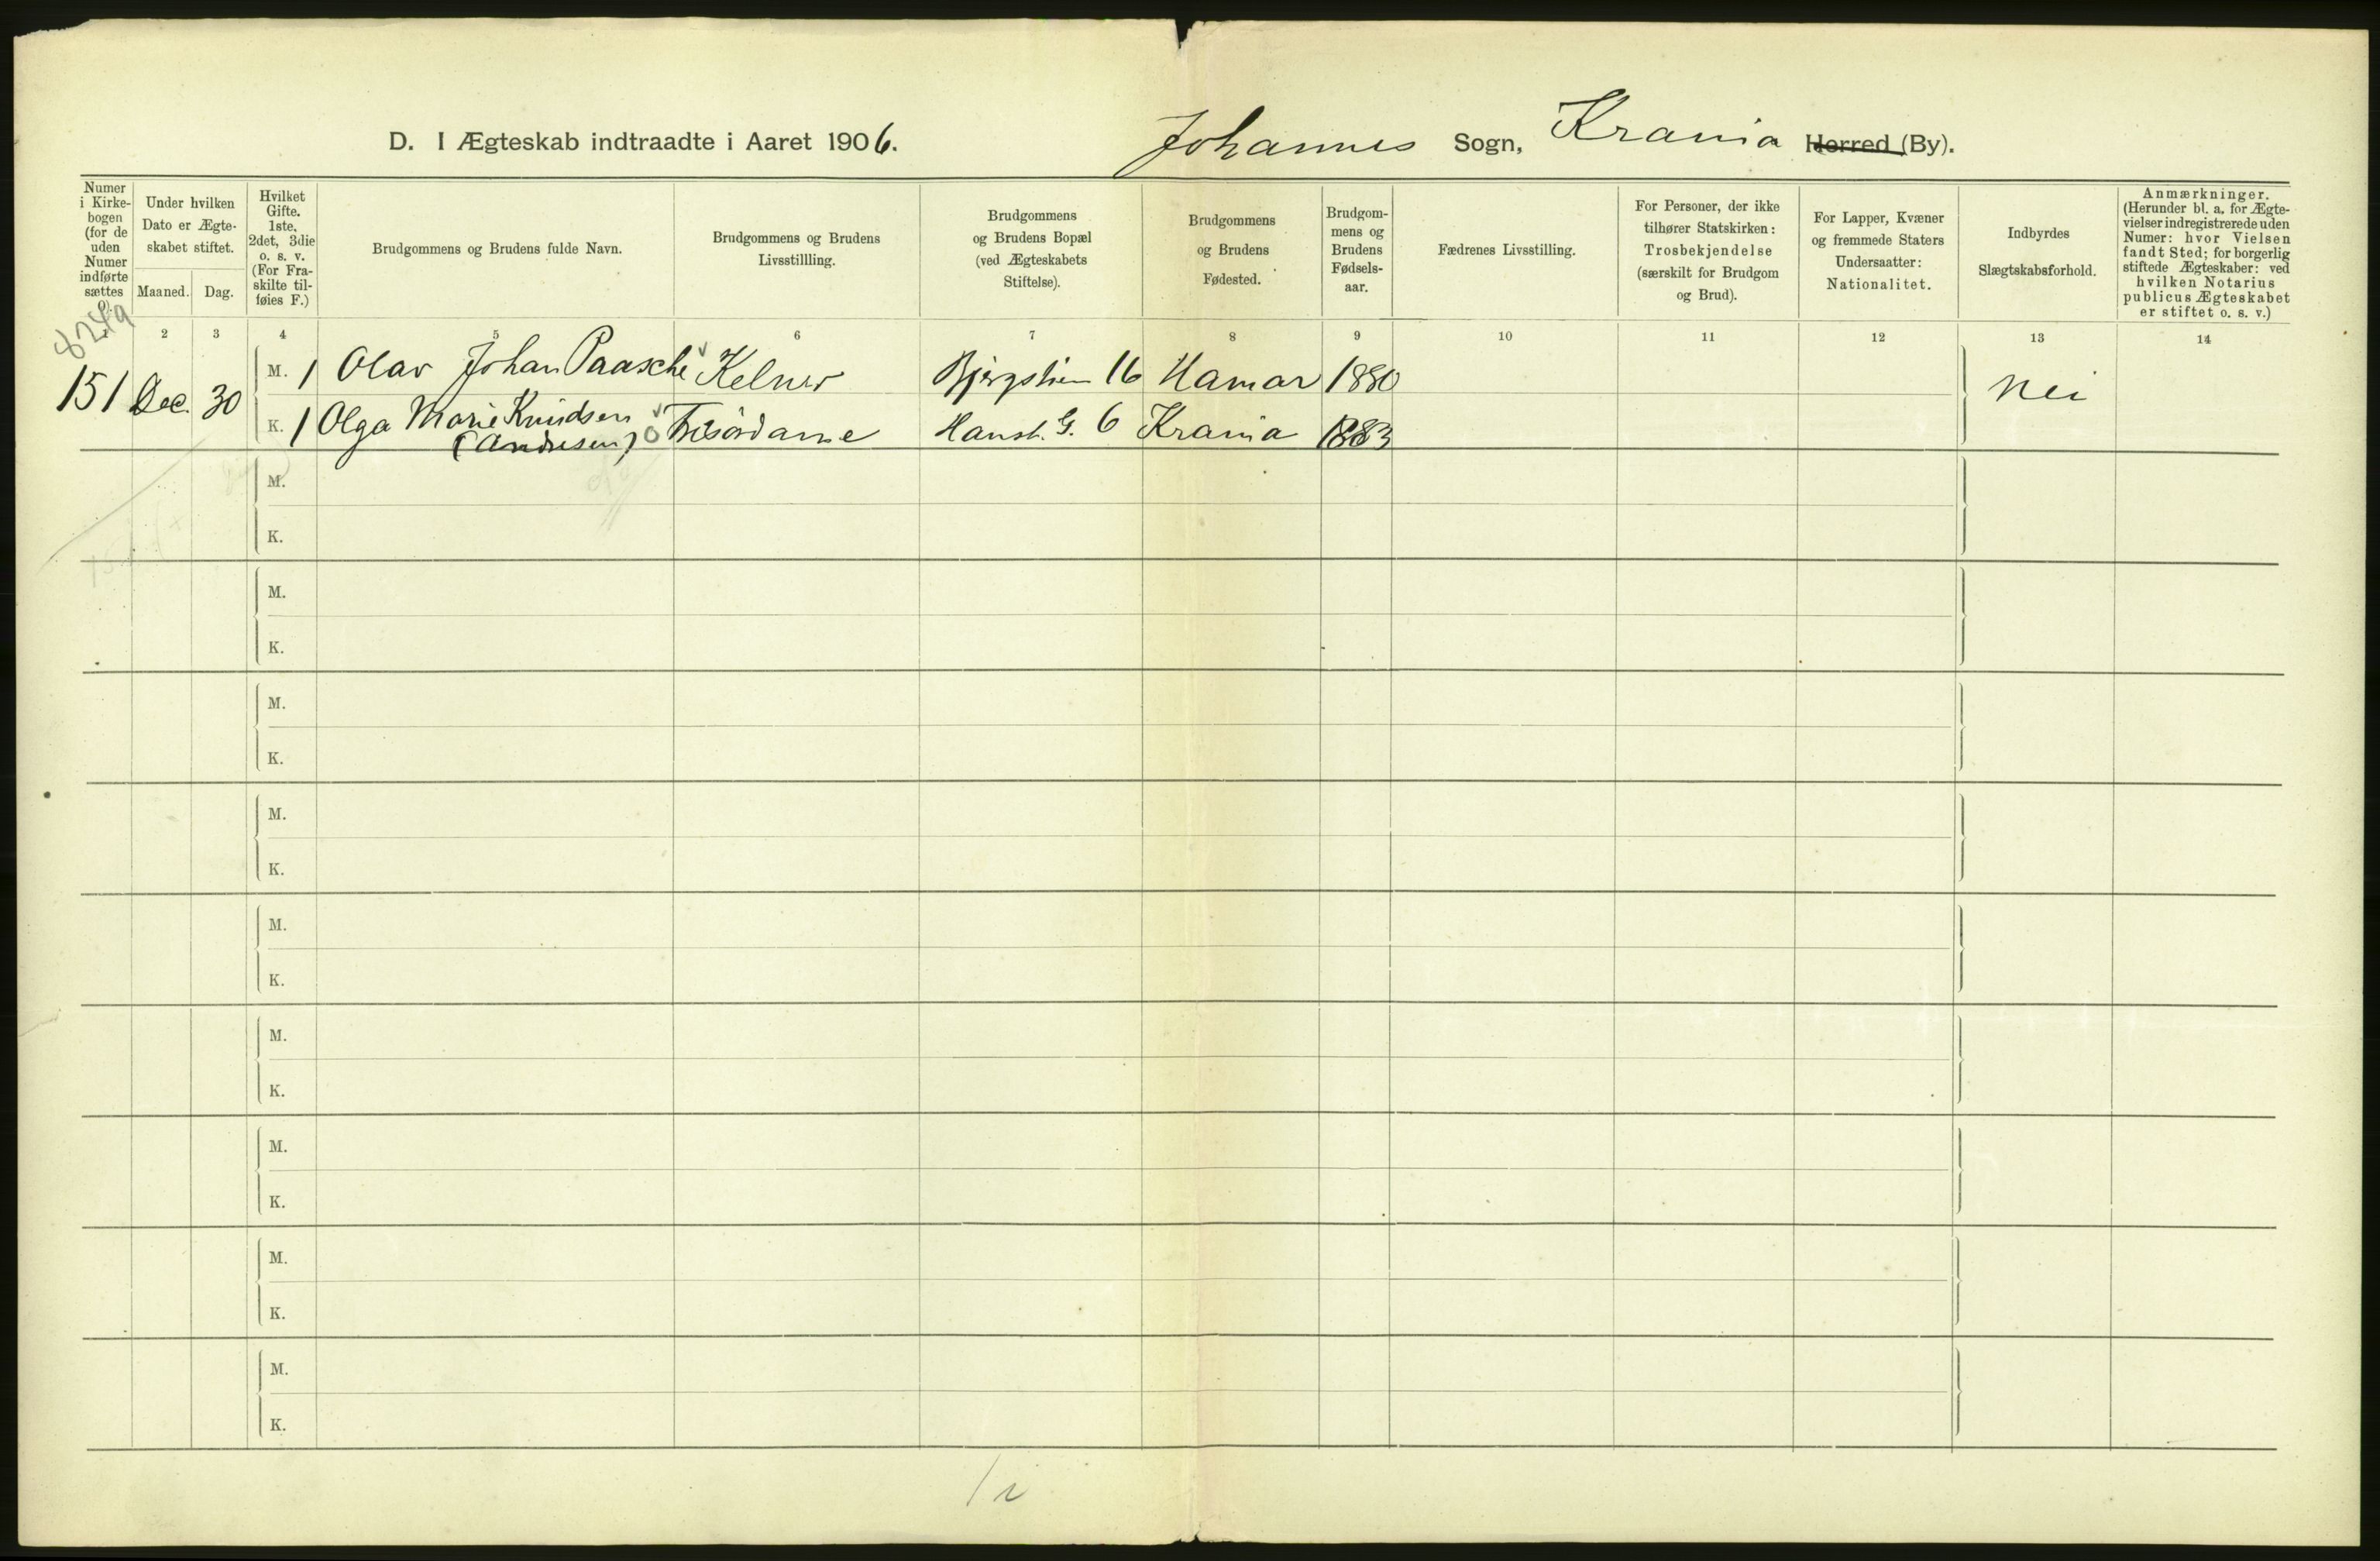 D. I Ægteskab indtraadte i Aaret 1906. Johannes Sogn, Krania Herred (By).
Numer
i Kirke-
bogen
(for de
uden
Numer
indførte
sættes
0).
Under hvilken
Dato er Ægte-
skabet stiftet.
Maaned. Dag.
Hvilket
Gifte.
1ste,
2det, 3die
o. s. v.
(For Fra-
skilte til-
føies F.)
Brudgommens og Brudens fulde Navn.
Brudgommens og Brudens
Livsstillling.
Brudgommens
og Brudens Bopæl
(ved Ægteskabets
Stiftelse).
Brudgommens
og Brudens
Fødested.
Brudgom-
mens og
Brudens
Fødsels-
aar.
Fædrenes Livsstilling.
For Personer, der ikke
tilhører Statskirken:
Trosbekjendelse
(særskilt for Brudgom
og Brud).
For Lapper, Kvæner
og fremmede Staters
Undersaatter:
Nationalitet.
Indbyrdes
Slægtskabsforhold.
Anmærkninger.
(Herunder bl. a. for Ægte-
vielser indregistrerede uden
Numer: hvor Vielsen
fandt Sted; for borgerlig
stiftede Ægteskaber: ved
hvilken Notarius
publicus Ægteskabet
er stiftet o. s. v.)
1 2 3 4 5 6 7 8 9 10 11 12 13 14
8249
151 Dec. 30
M. 1 Olav Johan Paasche Kelner 16 Hamar 1880 Nei
K. 1 Olga Marie Knudsen Hansh. G. 6 Krania 1883
(Andresen)
M.
K.
M.
K.
M.
K.
M.
K.
M.
K.
M.
K.
M.
K.
M.
K.
M.
K.